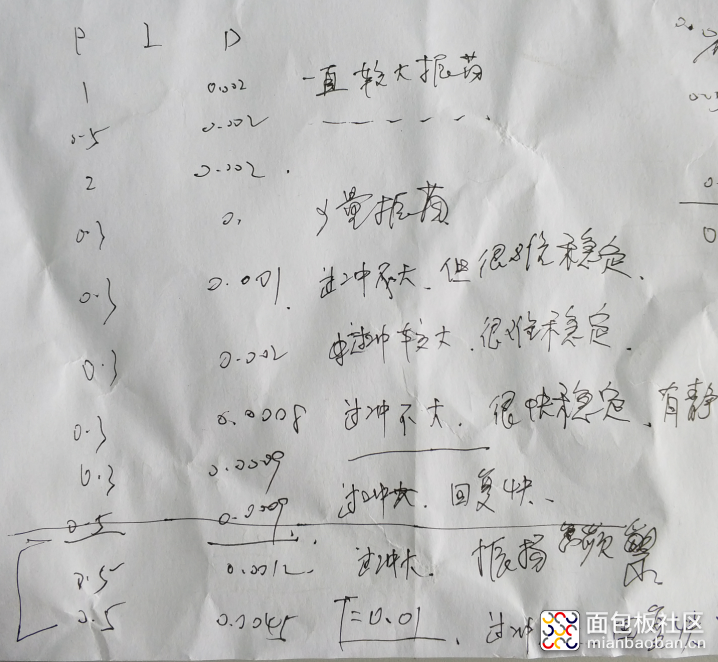 P I D
1 0.002 一直较大振荡
0.5 0.002 -----.
2 0.002.
0.3 0. 少量振荡
0.3 0.001. 过冲不大.但很难稳定.
0.3 0.002 过冲较大.很难稳定.
0.3 0.0008 过冲不大.很快稳定.有静
0.3 0.0009
0.5 0.009 过冲大.回复快.
0.5 0.0012. 过冲大.振荡 频繁
0.5 0.0045 I=0.01.过冲
面包板社区
mianbaoban.cn